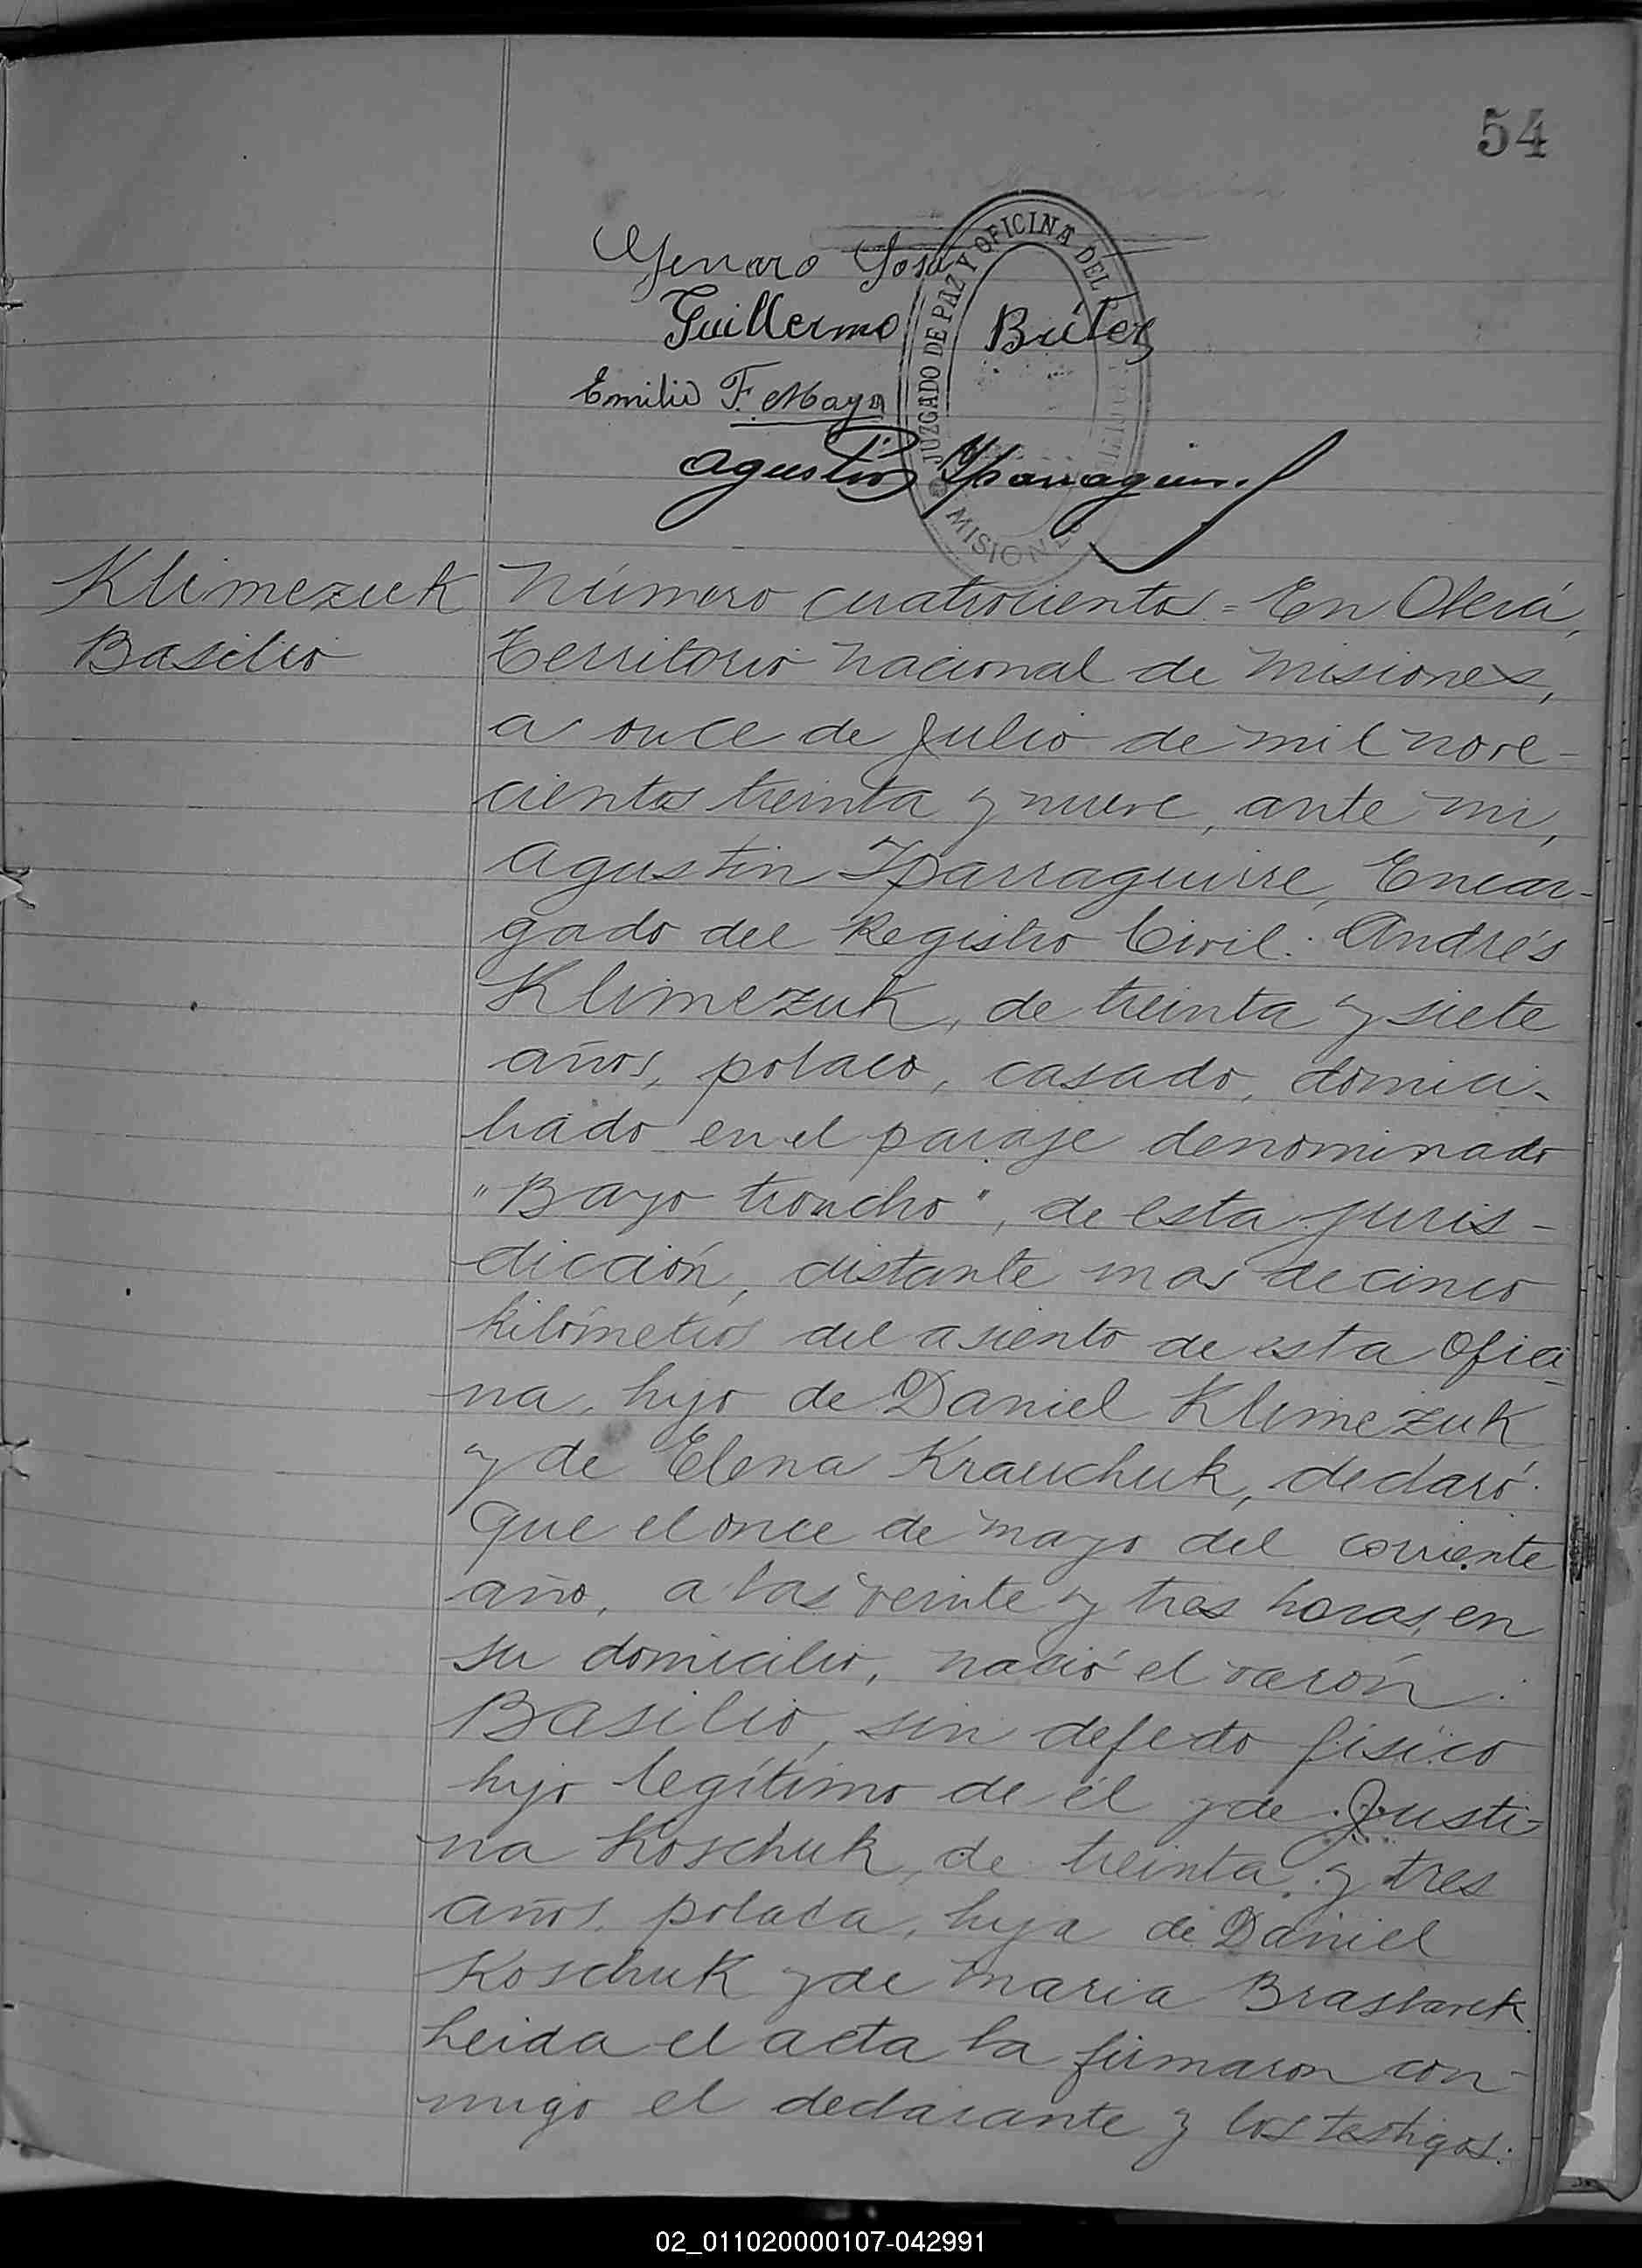 54
Genaro Sosa
Guillermo Brítez
Emilio F. Maya
JUZGADO DE PAZ Y OFICINA DEL
MISIONES
Agustín Yparraguirre
Klimezuk
Basilio
Número cuatrocientos = En Oberá,
Territorio Nacional de Misiones,
a once de Julio de mil nove-
cientos treinta y nueve, ante mi,
Agustin Iparraguirre, Encar-
gado del Registro Civil: Andrés
Klimezuk, de treinta y siete
años, polaco, casado, domici-
liado en el paraje denominado
"Bayo troncho", de esta juris-
dicción, distante mas de cinco
kilómetros del asiento de esta Ofici-
na, hijo de Daniel Klimezuk
y de Elena Krauchuk, declaró:
Que el once de mayo del corriente
año, a las veinte y tres horas, en
su domicilio, nació el varón:
Basilio, sin defecto físico
hijo legítimo de él y de Justi-
na Koschuk, de treinta y tres
años, polaca, hija de Daniel
Koschuk y de Maria
Leida el acta la firmaron con-
migo el declarante y los testigos:
02_011020000107-042991